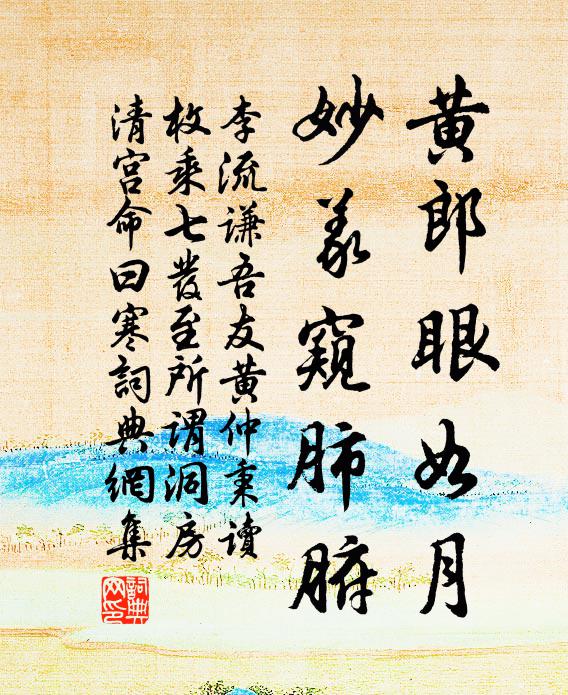 黄郎眼如月
妙義窺肺腑
李流謙吾友黄仲秉讀
枚乘七發至所謂洞房
清宫命曰寒詞典網集
詞典
網印